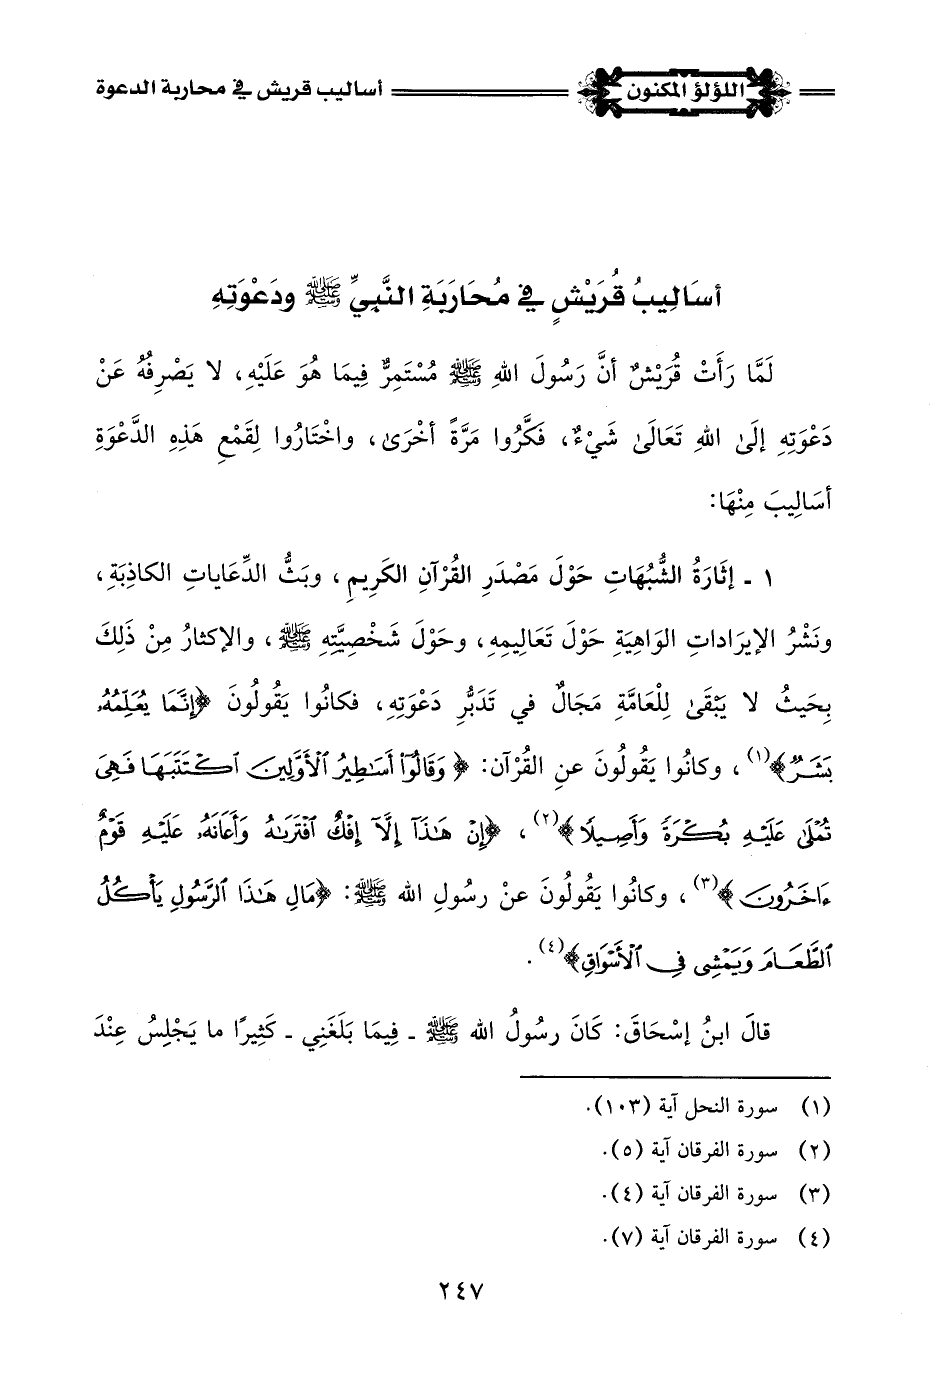 اللؤلؤ المكنون أساليب قريش في محاربة الدعوة
أسَالِيبُ قُرَيْشٍ في مُحَارَبَةِ النَّبِيِّ ﷺ ودَعْوَتِهِ
لَمَّا رَأَتْ قُرَيْشٌ أنَّ رَسُولَ اللهِ ﷺ مُسْتَمِرٌّ فِيمَا هُوَ عَلَيْهِ، لا يَصْرِفُهُ عَنْ
دَعْوَتِهِ إلَىٰ اللهِ تَعَالَىٰ شَيْءٌ، فَكَّرُوا مَرَّةً أخْرَىٰ، واخْتَارُوا لِقَمْعِ هَذِهِ الدَّعْوَةِ
أسَالِيبَ مِنْهَا:
١ ـ إثَارَةُ الشُّبُهَاتِ حَوْلَ مَصْدَرِ القُرْآنِ الكَرِيمِ، وبَثُّ الدِّعَاياتِ الكَاذِبَةِ،
ونَشْرُ الإيرَاداتِ الوَاهِيَةِ حَوْلَ تَعَالِيمِهِ، وحَوْلَ شَخْصِيَّتِهِ ﷺ، والإكثارُ مِنْ ذَلِكَ
بِحَيثُ لا يَبْقَىٰ لِلْعَامَّةِ مَجَالٌ في تَدَبُّرِ دَعْوَتِهِ، فكَانُوا يَقُولُونَ ﴿إِنَّمَا يُعَلِّمُهُۥ
بَشَرٌ﴾(١)، وكانُوا يَقُولُونَ عنِ القُرْآن: ﴿وَقَالُوٓا۟ أَسَٰطِيرُ ٱلْأَوَّلِينَ ٱكْتَتَبَهَا فَهِىَ
تُمْلَىٰ عَلَيْهِ بُكْرَةً وَأَصِيلًا﴾(٢)، ﴿إِنْ هَٰذَآ إِلَّآ إِفْكٌ ٱفْتَرَىٰهُ وَأَعَانَهُۥ عَلَيْهِ قَوْمٌ
ءَاخَرُونَ﴾(٣)، وكانُوا يَقُولُونَ عنْ رسُولِ الله ﷺ: ﴿مَالِ هَٰذَا ٱلرَّسُولِ يَأْكُلُ
ٱلطَّعَامَ وَيَمْشِى فِى ٱلْأَسْوَاقِ﴾(٤).
قالَ ابنُ إسْحَاقَ: كَانَ رسُولُ الله ﷺ ـ فِيمَا بَلَغَنِي ـ كَثِيرًا ما يَجْلِسُ عِنْدَ
(١) سورة النحل آية (١٠٣).
(٢) سورة الفرقان آية (٥).
(٣) سورة الفرقان آية (٤).
(٤) سورة الفرقان آية (٧).
٢٤٧